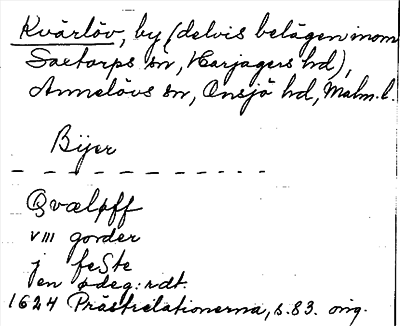 Kvärlöv, by (delvis belägen inom
Saxtorps sn, Harjagers hd),
Annelövs sn, Onsjö hd, Malm. l.
Bÿer
Qvæløff
VIII gorder
j feste
en ødeg: rdt.
1624 Prästrelationerna, s. 83. orig.